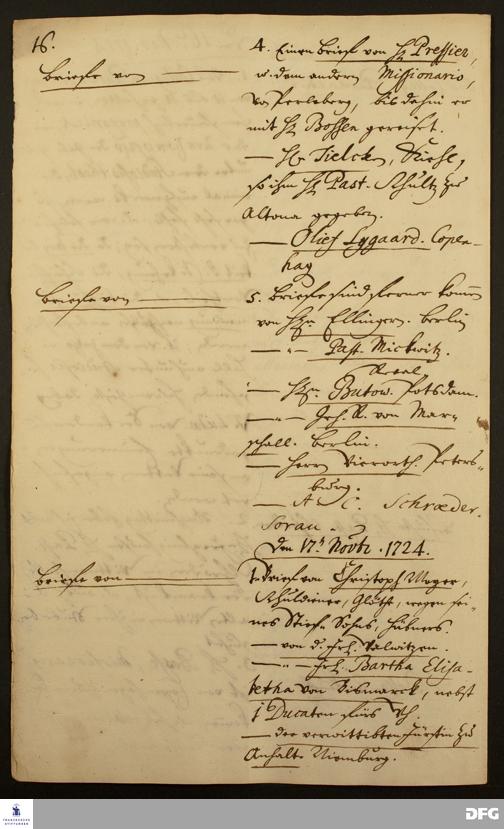 16.
briefe von
4. Einen brief von H. Pressier,
u. dem andern Missionario,
von Perleberg, bis dahin er
mit H. Bossen gereiset.
— H. Tielck, Stiehl,
so ihm H. Past. Schultz zu
Altona gegeben.
— Olief Lygaard. Copen-
hag
briefe von
5. briefe sind ferner komm
von H. Ellinger. berlin
— " — Past. Mickwitz.
Reval.
— H. Butow. Potsdam.
— " — Geh. R. von Mar-
schall. berlin.
— Herrn Vierorth. Peters-
burg.
— A. C. Schrœder.
Sorau.
Den 17. Novbr. 1724.
briefe von
1. Brief von Christoph Mayer,
wegen sei-
nes Stief-Sohns, Hübners.
— von d. Frl. Palwitzen.
— " — Frl. Bartha Elisa-
betha von Bismarck, nebst
1 Ducaten fürs
— der verwittibten Fürstin zu
Anhalt-Nienburg.
FRANCKESCHE STIFTUNGEN
DFG